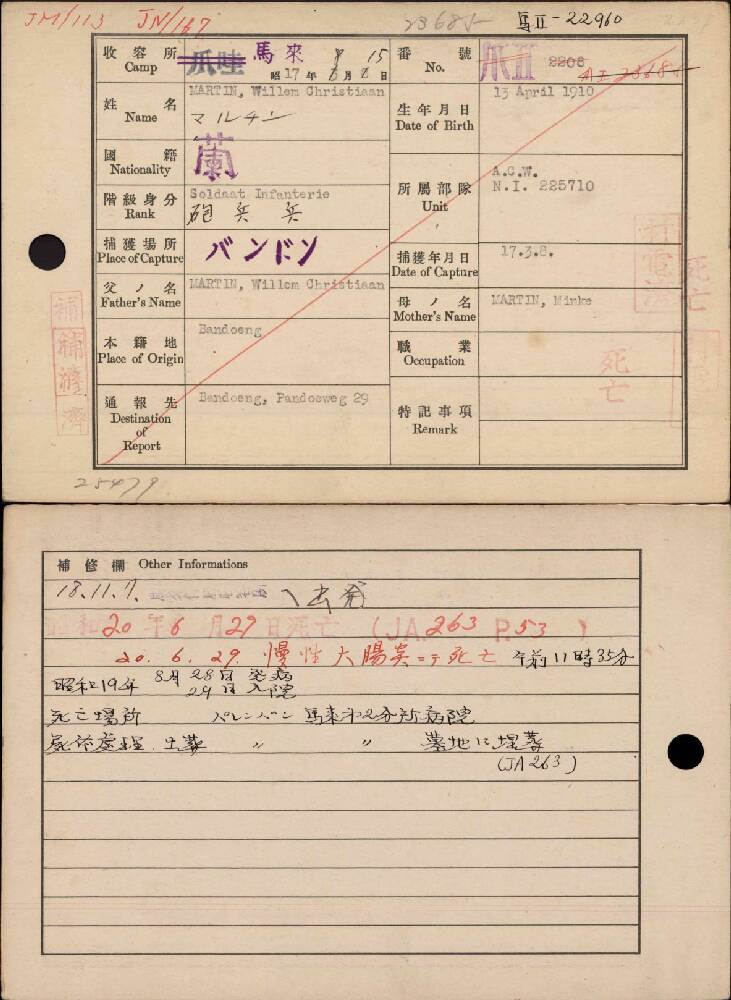 JM/113 JN/167 23685 馬II-22960
收容所 Camp 爪哇 馬來 昭17年8月15日
番號 No. 爪II 2206 AI 23685
姓名 Name MARTIN, Willem Christiaan
マルチン
生年月日 Date of Birth 13 April 1910
國籍 Nationality 蘭
階級身分 Rank Soldaat Infanterie
砲兵 兵
所屬部隊 Unit A.C.W.
N.I. 225710
捕獲場所 Place of Capture バンドン
捕獲年月日 Date of Capture 17.3.8.
父ノ名 Father's Name MARTIN, Willem Christiaan
母ノ名 Mother's Name MARTIN, Minke
本籍地 Place of Origin Bandoeng
職業 Occupation
通報先 Destination of Report Bandoeng, Pandoeweg 29
特記事項 Remark
死亡
死亡
補
濟
25479
補修欄 Other Informations
18.11.7. ヘ出発
昭和20年6月29日死亡 (JA.263 P.53)
20.6.29. 慢性大腸炎ニテ死亡 午前11時35分
昭和19年 8月28日 発病
29日 入院
死亡場所 パレンバン 馬来第2分所病院
屍体處理 土葬 〃 〃 墓地に埋葬
(JA 263)